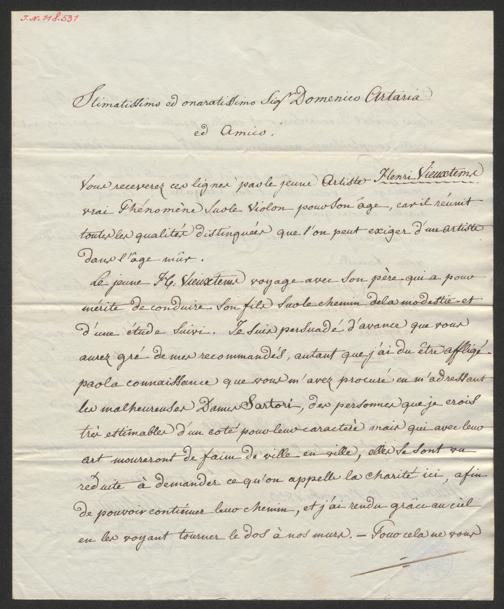 I.N. 118.531
Stimatissimo ed onaratissimo Sigr Domenico Artaria
ed Amico.
Vous receverez ces lignes par le jeune Artiste Henri Vieuxtems
vrai Phénomène sur le Violon pour son âge, car il reunit
toutes les qualités distinguees que l'on peut exiger d'un artiste
dans l'âge mûr.
Le jeune H. Vieuxtems voyage avec son père qui a pour
mérite de conduire son fils sur le chemin de la modestie et
d'une étude suivi. Je suis persuadé d'avance que vous
aurez gré de mes recommandés, autant que j'ai du être affligé
par la connaissance que vous m'avez procuré en m'adressant
les malheureuses Dames Sartori, des personnes que je crois
très estimables d'un coté pour leur caractère mais qui avec leur
art moureront de faim de ville en ville, elles se sont vu
reduite à demander ce qu'on appelle la charité ici, afin
de pouvoir continuer leur chemin, et j'ai rendu grâce au ciel
en les voyant tourner le dos à nos murs. — Tout cela ne vous